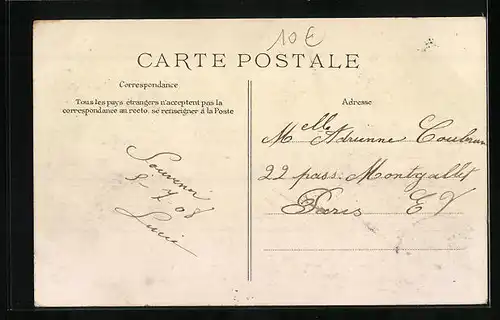 10€
CARTE POSTALE
Correspondance
Tous les pays étrangers n'acceptent pas la
correspondance au recto. se renseigner à la Poste
Souvenir
8-7-08
Lucie
Adresse
Melle Adrienne
22 pass. Montgallet
Paris E V